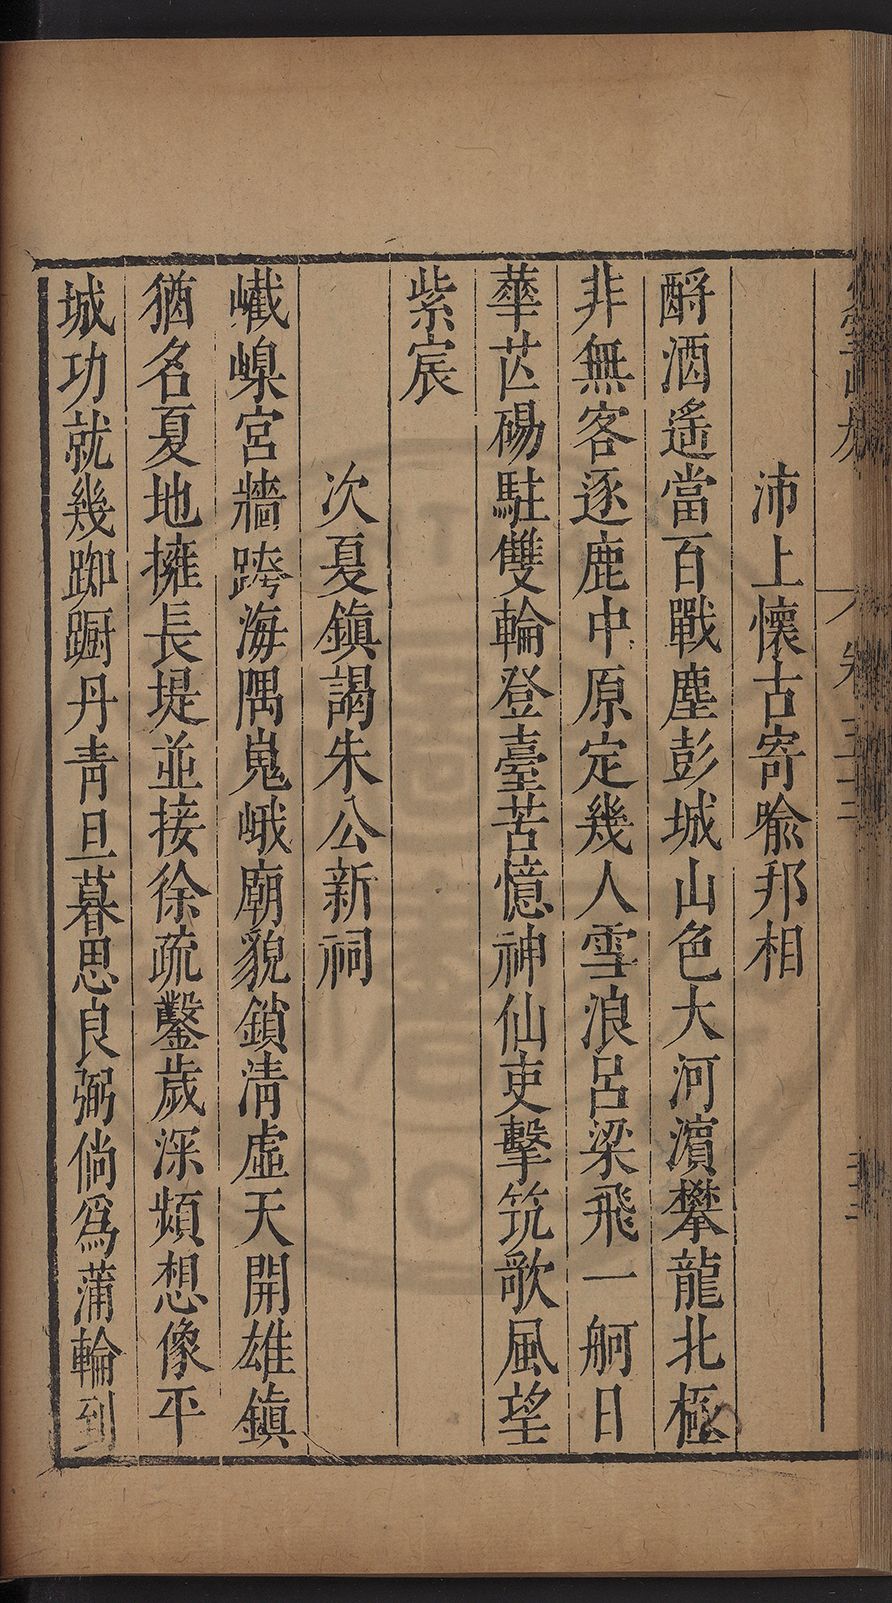 沛上懷古寄喩邦相
酹酒遙當百戰塵彭城山色大河濵攀龍北極
非無客逐鹿中原定幾人雪浪呂梁飛一舸日
華芒碭駐雙輪登臺苦憶神仙吏擊筑歌風望
紫宸
次夏鎮謁朱公新祠
巀嵲宮牆跨海隅嵬峨廟貌鎖淸虛天開雄鎮
猶名夏地擁長堤並接徐疏鑿歲深頻想像平
城功就幾踟蹰丹靑旦暮思良弼倘爲蒲輪到